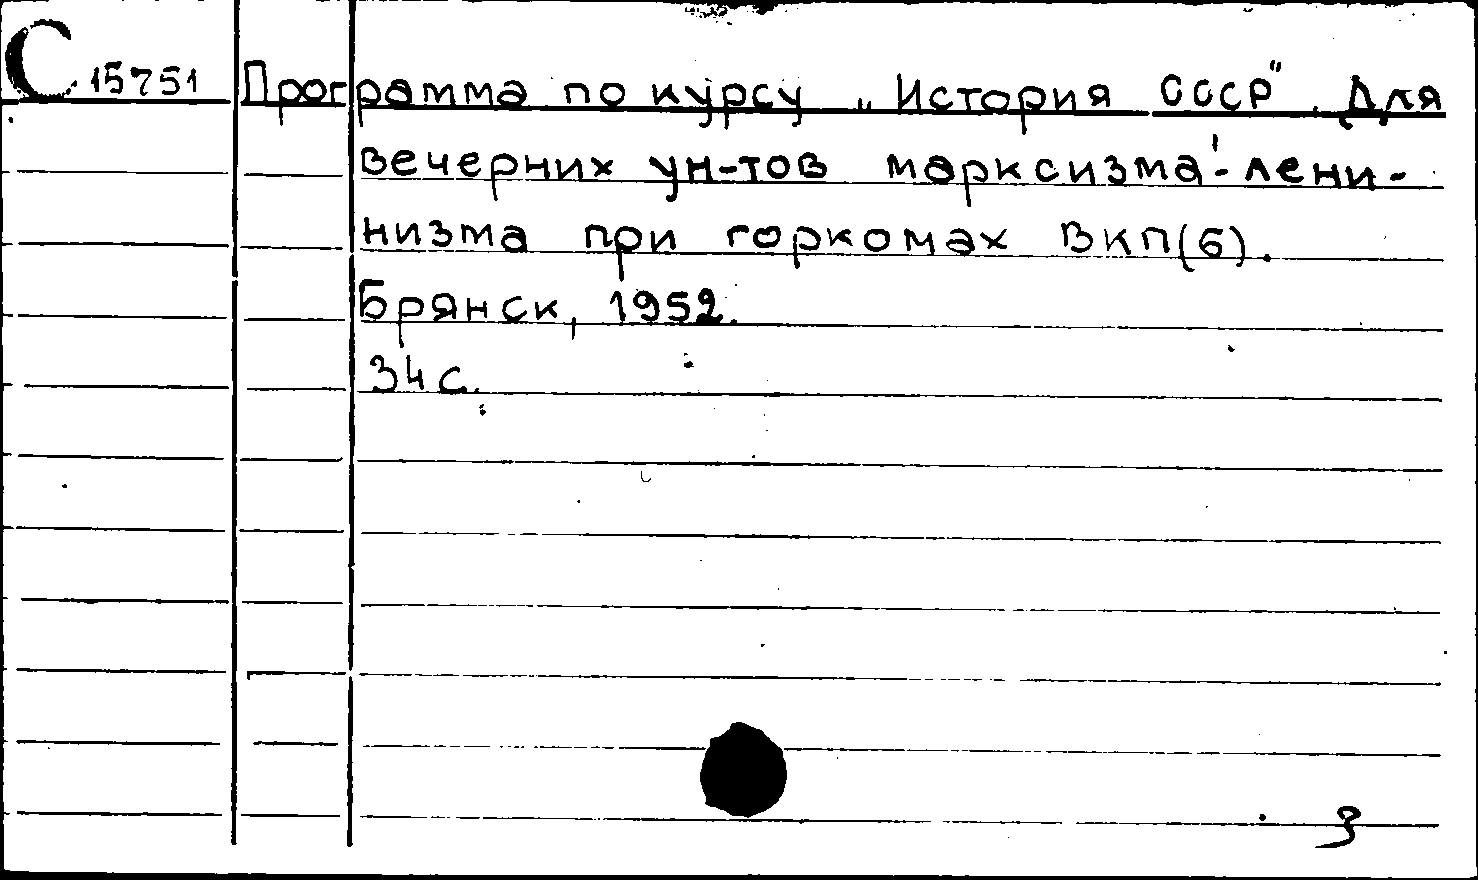 С 15751 Программа по курсу „История СССР". Для
вечерних ун-тов марксизма-лени-
низма при горкомах ВКП(б).
Брянск, 1952.
34 с.
З